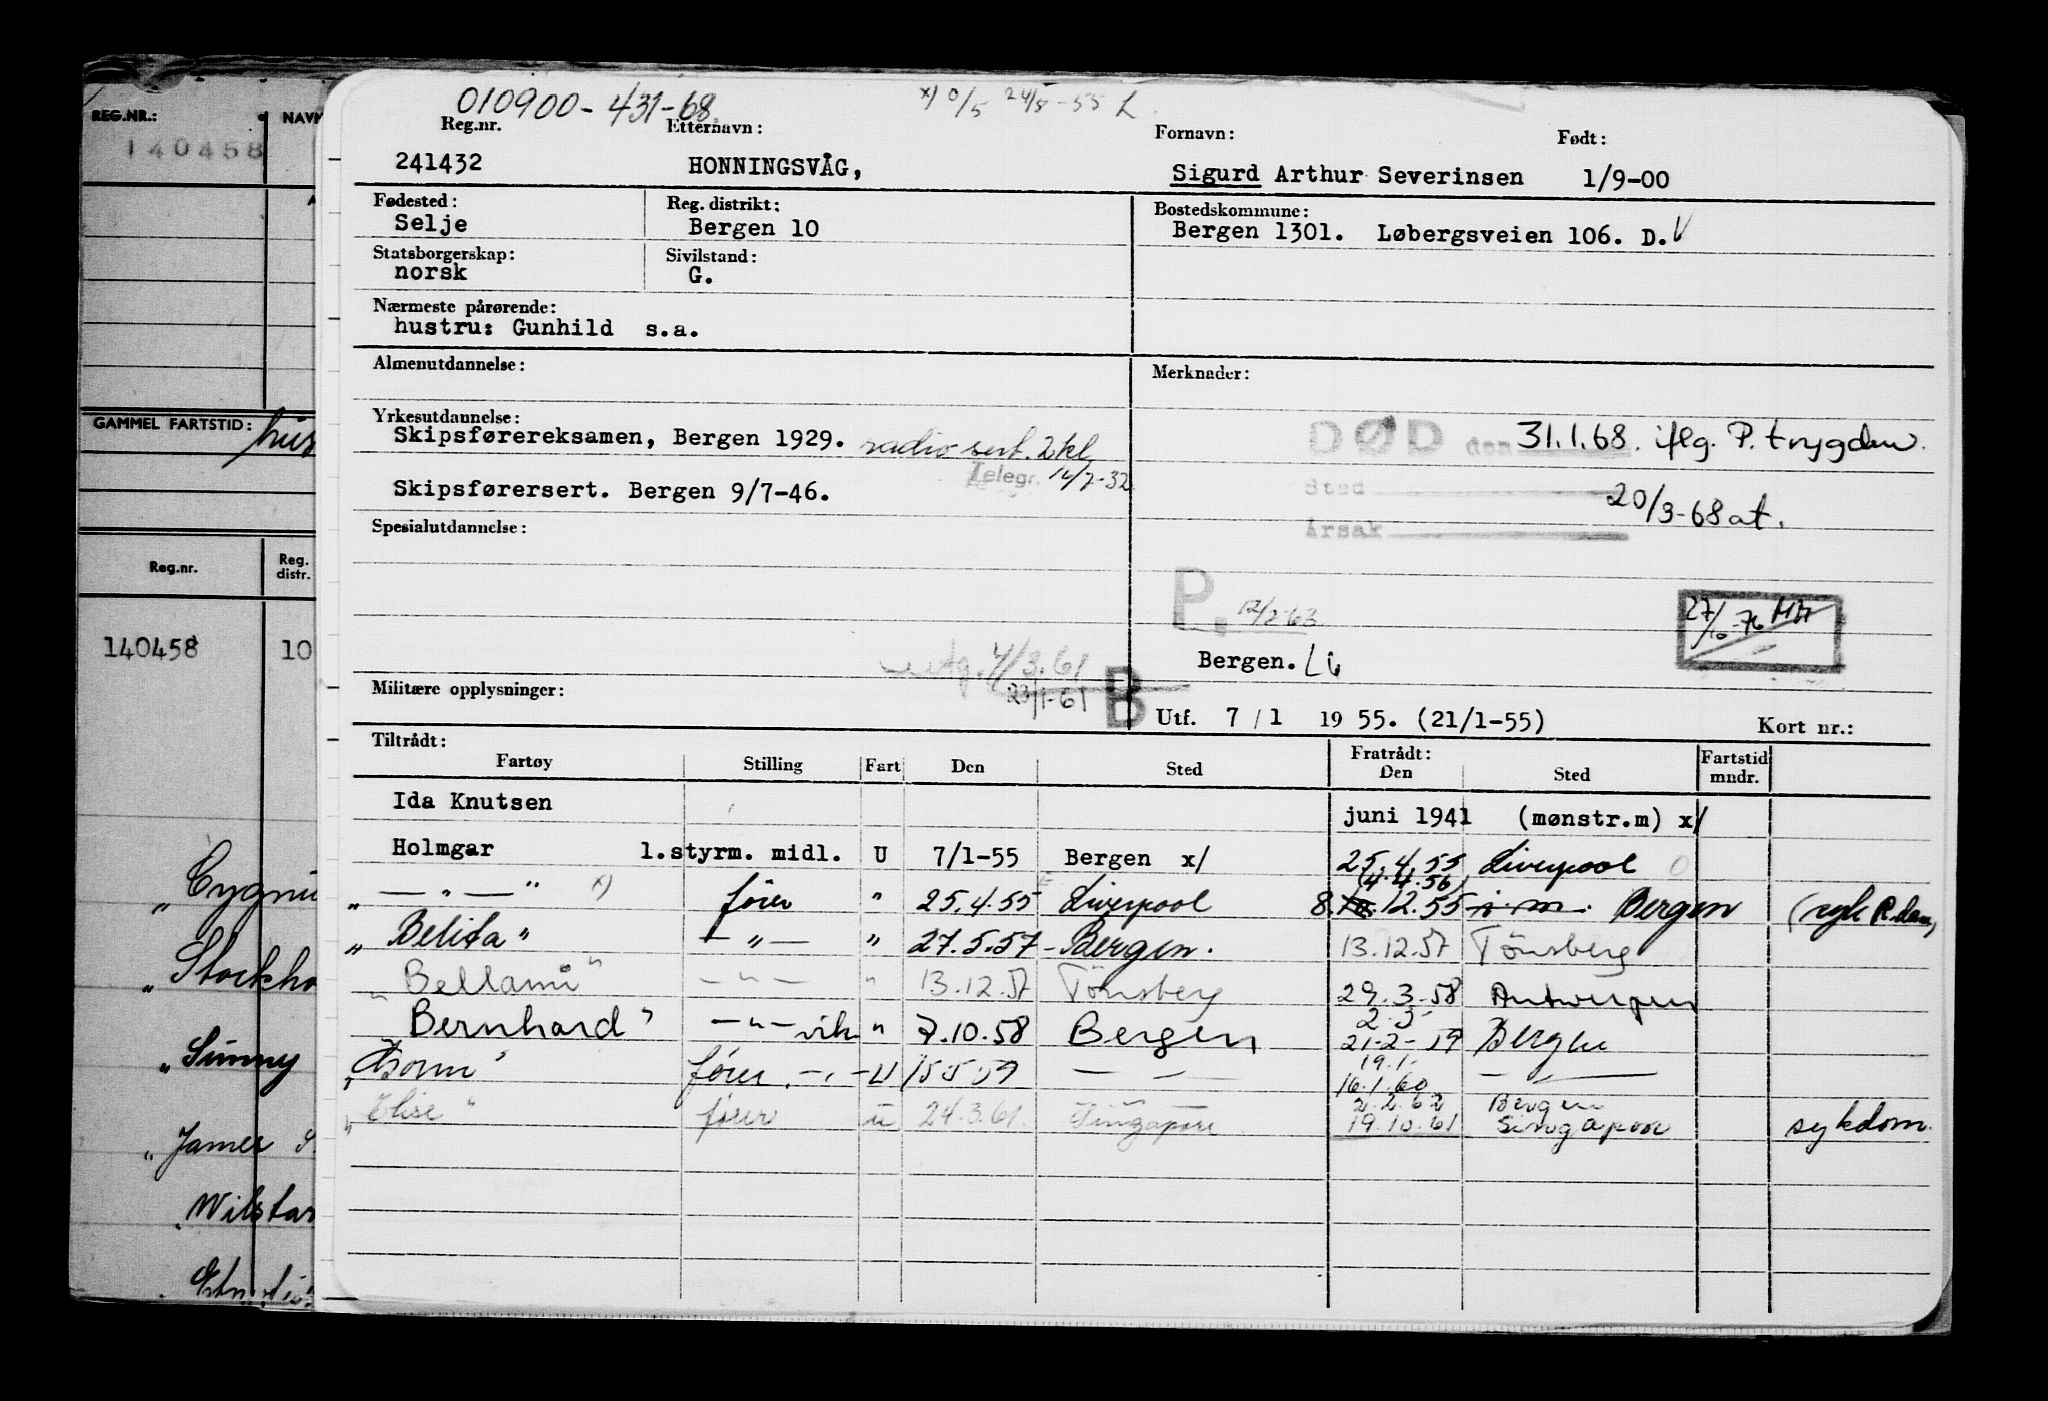 010900-431-68
x) 0/5 24/5-55 L
Reg.nr. Etternavn: Fornavn: Født:
241432 HONNINGSVÅG, Sigurd Arthur Severinsen 1/9-00
Fødested: Reg. distrikt: Bostedskommune:
Selje Bergen 10 Bergen 1301. Løbergsveien 106. D. V
Statsborgerskap: Sivilstand:
norsk G.
Nærmeste pårørende:
hustru: Gunhild s.a.
Almenutdannelse: Merknader:
Yrkesutdannelse:
Skipsførereksamen, Bergen 1929. radio sert. 2 kl
DØD den 31.1.68. iflg. P.trygden
Telegr. 12/7-32
Skipsførersert. Bergen 9/7-46.
Sted 20/3-68 at.
Årsak
Spesialutdannelse:
P. 12/2-63
27/10-76
Bergen.
4/3.61
23/1-61 B
Militære opplysninger:
Utf. 7/1 1955. (21/1-55) Kort nr.:
Tiltrådt: Fratrådt:
Fartøy Stilling Fart Den Sted Den Sted Fartstid mndr.
Ida Knutsen juni 1941 (mønstr.m) x/
Holmgar 1.styrm. midl. U 7/1-55 Bergen x/ 25.4.55 Liverpool 0
(4.4.56)
„ — " — " x) fører " 25.4.55 Liverpool 8. 12.55 Bergen
„ Belita " — " — " 27.5.57 - Bergen. 13.12.57 Tönsberg
„ Bellami " — " — " 13.12.57 Tönsberg 29.3.58 Antwerpen
2.3
Bernhard " — " — vik " 7.10.58 Bergen 21-2-59 Bergen
19.1.
fører U 15.5.59 — — 16.1.60 — —
2.2.62 Bergen
„ Elise " fører u 24.3.61 Singapore 19.10.61 Singapore sykdom.
REG.NR.: NAVN
140458
GAMMEL FARTSTID:
Reg.nr. Reg. distr.
140458 10
„ Sunny
„ James